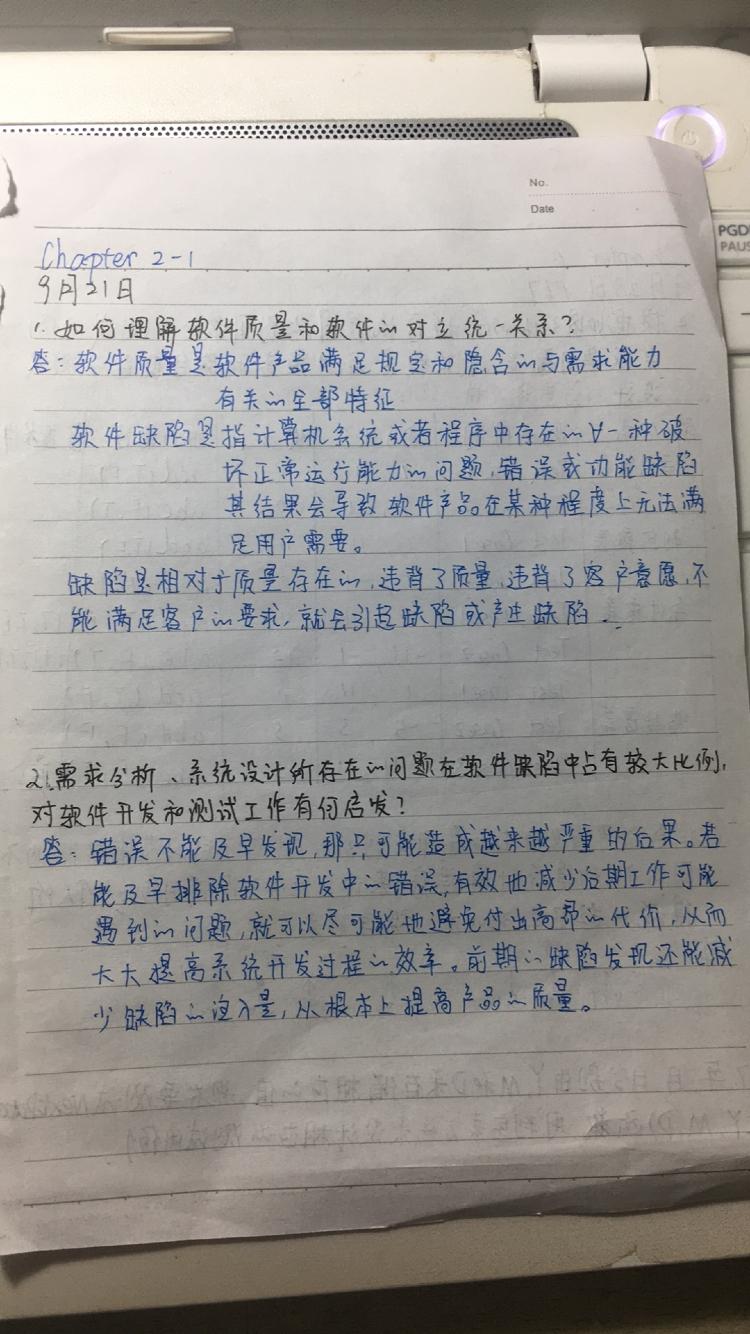 No.
Date
PGD
PAUS
Chapter 2-1
9月21日
1. 如何理解软件质量和软件的对立统一关系?
答:软件质量是软件产品满足规定和隐含的与需求能力
有关的全部特征
软件缺陷是指计算机系统或者程序中存在的∀一种破
坏正常运行能力的问题,错误或功能缺陷
其结果会导致软件产品在某种程度上无法满
足用户需要。
缺陷是相对于质量存在的,违背了质量,违背了客户意愿,不
能满足客户的要求,就会引起缺陷或产生缺陷.
2.需求分析、系统设计所存在的问题在软件缺陷中占有较大比例,
对软件开发和测试工作有何启发?
答:错误不能及早发现,那只可能造成越来越严重的后果。若
能及早排除软件开发中的错误,有效地减少后期工作可能
遇到的问题,就可以尽可能地避免付出高昂的代价,从而
大大提高系统开发过程的效率。前期的缺陷发现还能减
少缺陷的注入量,从根本上提高产品的质量。